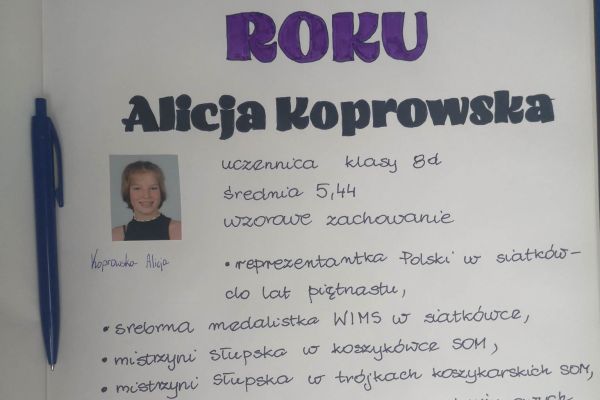 ROKU
Alicja Koprowska
uczennica klasy 8d
średnia 5,44
wzorowe zachowanie
Koprowska Alicja
• reprezentantka Polski w siatków-
do lat piętnastu,
• srebrna medalistka WIMS w siatkówce,
• mistrzyni słupska w koszykówce SOM,
• mistrzyni słupska w trójkach koszykarskich SOM,